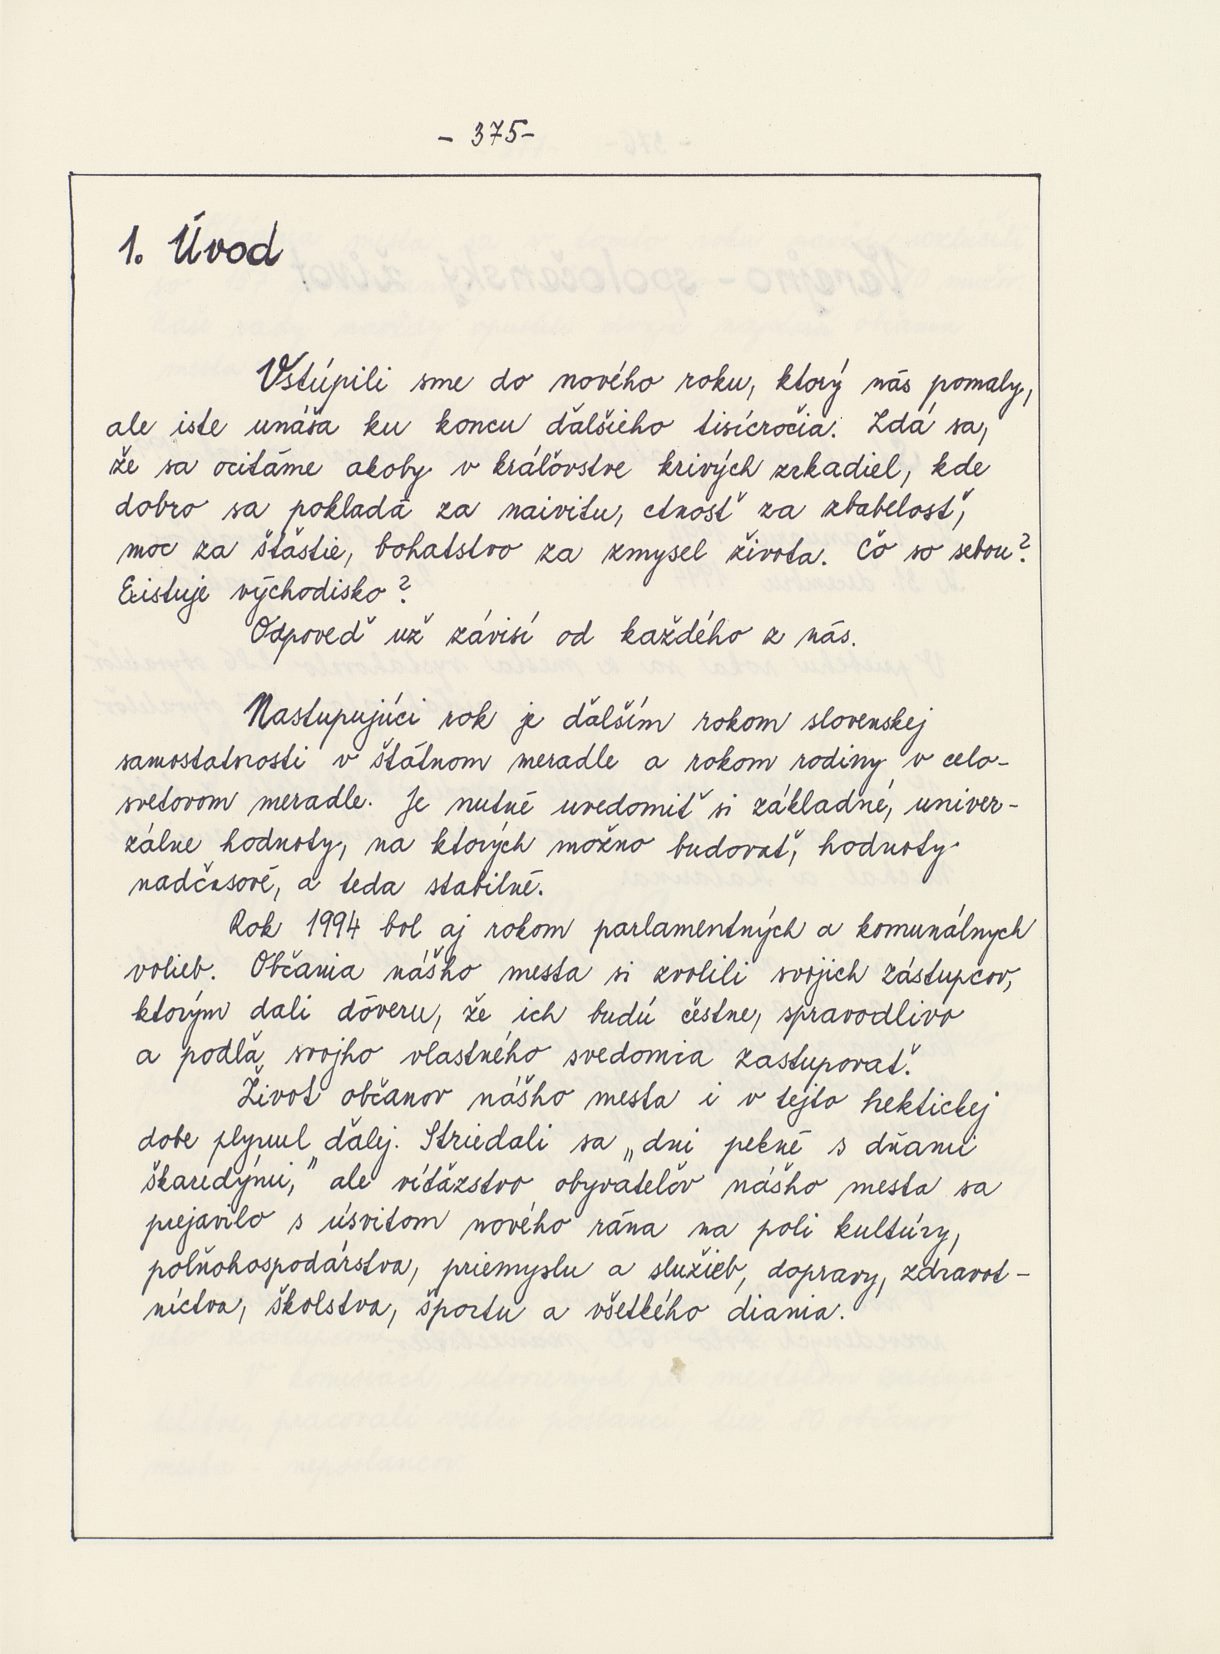 - 375-
1. Úvod
Vstúpili sme do nového roku, ktorý nás pomaly,
ale iste unáša ku koncu ďalšieho tisícročia. Zdá sa,
že sa ocitáme akoby v kráľovstve krivých zrkadiel, kde
dobro sa pokladá za naivitu, ctnosť za zbabelosť,
moc za šťastie, bohatstvo za zmysel života. Čo so sebou?
Existuje východisko?
Odpoveď už závisí od každého z nás.
Nastupujúci rok je ďalším rokom slovenskej
samostatnosti v štátnom meradle a rokom rodiny v celo-
svetovom meradle. Je nutné uvedomiť si základné, univer-
zálne hodnoty, na ktorých možno budovať, hodnoty
nadčasové, a teda stabilné.
Rok 1994 bol aj rokom parlamentných a komunálnych
volieb. Občania nášho mesta si zvolili svojich zástupcov,
ktorým dali dôveru, že ich budú čestne, spravodlivo
a podľa svojho vlastného svedomia zastupovať.
Život občanov nášho mesta i v tejto hektickej
dobe plynul ďalej. Striedali sa „dni pekné s dňami
škaredými,” ale víťazstvo obyvateľov nášho mesta sa
prejavilo s úsvitom nového rána na poli kultúry,
poľnohospodárstva, priemyslu a služieb, dopravy, zdravot-
níctva, školstva, športu a všetkého diania.